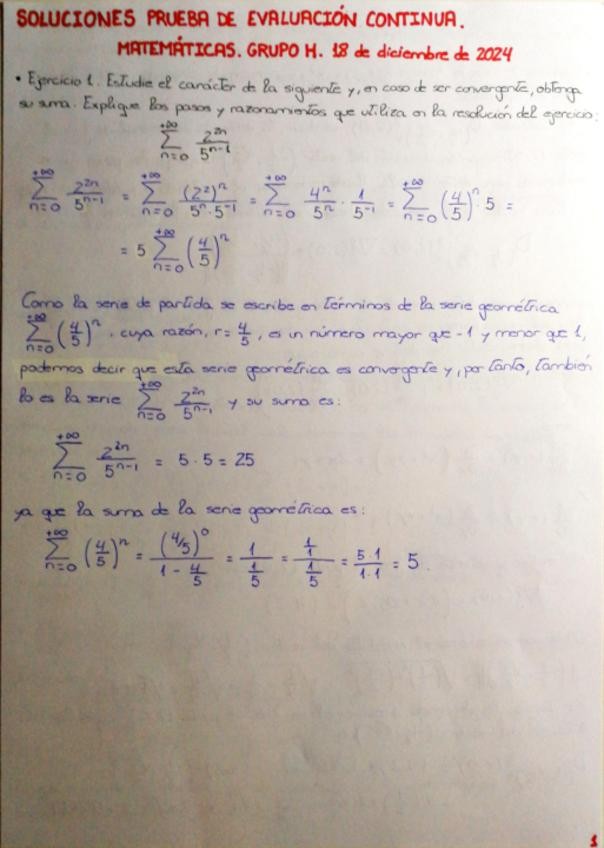 SOLUCIONES PRUEBA DE EVALUACIÓN CONTINUA.
MATEMÁTICAS. GRUPO H. 18 de diciembre de 2024
• Ejercicio 1. Estudie el carácter de la siguiente y, en caso de ser convergente, obtenga
su suma. Explique los pasos y razonamientos que utiliza en la resolución del ejercicio:
\sum_{n=0}^{+\infty} \frac{2^{2n}}{5^{n-1}}
\sum_{n=0}^{+\infty} \frac{2^{2n}}{5^{n-1}} = \sum_{n=0}^{+\infty} \frac{(2^2)^n}{5^n \cdot 5^{-1}} = \sum_{n=0}^{+\infty} \frac{4^n}{5^n} \cdot \frac{1}{5^{-1}} = \sum_{n=0}^{+\infty} \left(\frac{4}{5}\right)^n \cdot 5 =
= 5 \sum_{n=0}^{+\infty} \left(\frac{4}{5}\right)^n
Como la serie de partida se escribe en términos de la serie geométrica
\sum_{n=0}^{+\infty} \left(\frac{4}{5}\right)^n, cuya razón, r = \frac{4}{5}, es un número mayor que -1 y menor que 1,
podemos decir que esta serie geométrica es convergente y, por tanto, también
lo es la serie \sum_{n=0}^{+\infty} \frac{2^{2n}}{5^{n-1}} y su suma es:
\sum_{n=0}^{+\infty} \frac{2^{2n}}{5^{n-1}} = 5 \cdot 5 = 25
ya que la suma de la serie geométrica es:
\sum_{n=0}^{+\infty} \left(\frac{4}{5}\right)^n = \frac{(4/5)^0}{1 - \frac{4}{5}} = \frac{1}{\frac{1}{5}} = \frac{\frac{1}{1}}{\frac{1}{5}} = \frac{5 \cdot 1}{1 \cdot 1} = 5.
1